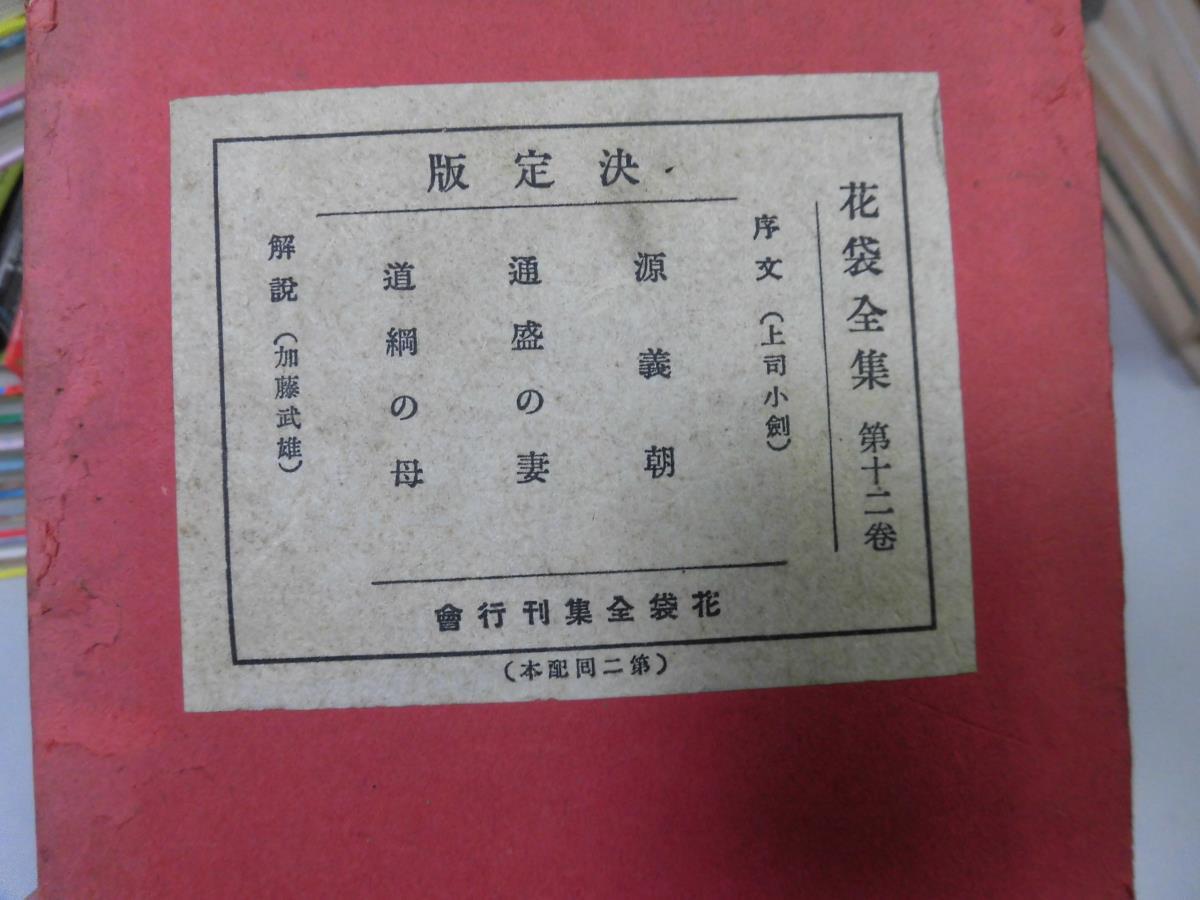 花袋全集 第十二卷
決定版
序文（上司小劍）
源義朝
通盛の妻
道綱の母
解說（加藤武雄）
花袋全集刊行會
（第二囘配本）